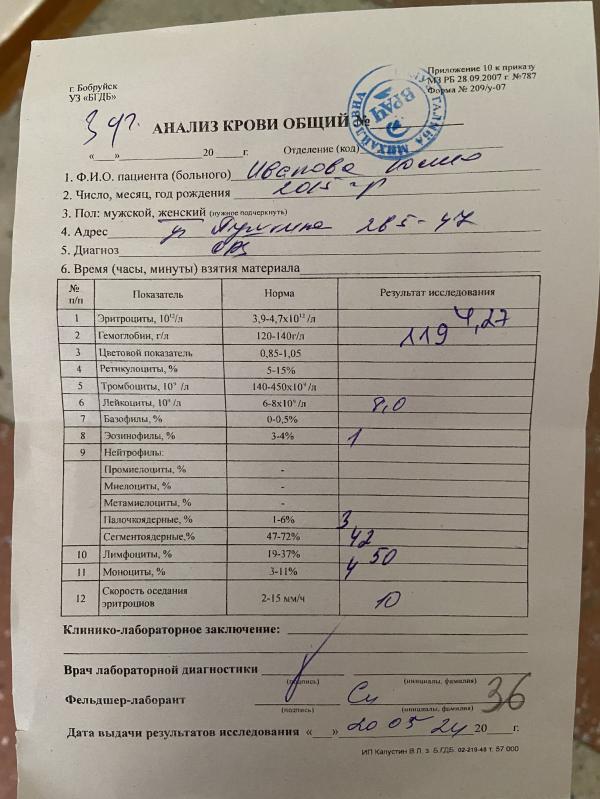 г. Бобруйск
УЗ «БГДБ»
Приложение 10 к приказу
МЗ РБ 28.09.2007 г. №787
Форма № 209/у-07
ВРАЧ
ГАЛИНА МИХАЙЛОВНА
АНАЛИЗ КРОВИ ОБЩИЙ №
« » 20 г. Отделение (код)
1. Ф.И.О. пациента (больного) Иванова Юлия
2. Число, месяц, год рождения 2015 г р
3. Пол: мужской, женский (нужное подчеркнуть)
4. Адрес ул Пушкина 285-47
5. Диагноз
6. Время (часы, минуты) взятия материала
№ п/п Показатель Норма Результат исследования
1 Эритроциты, 10¹²/л 3,9-4,7х10¹² /л 4,27
2 Гемоглобин, г/л 120-140г/л 119
3 Цветовой показатель 0,85-1,05
4 Ретикулоциты, % 5-15%
5 Тромбоциты, 10⁹ /л 140-450х10⁹ /л
6 Лейкоциты, 10⁹ /л 6-8х10⁹ /л 8,0
7 Базофилы, % 0-0,5%
8 Эозинофилы, % 3-4% 1
9 Нейтрофилы:
Промиелоциты, % -
Миелоциты, % -
Метамиелоциты, % -
Палочкоядерные, % 1-6% 3
Сегментоядерные,% 47-72% 42
10 Лимфоциты, % 19-37% 50
11 Моноциты, % 3-11% 4
12 Скорость оседания эритроциов 2-15 мм/ч 10
Клинико-лабораторное заключение:
Врач лабораторной диагностики
(подпись) (инициалы, фамилия)
Фельдшер-лаборант 36
(подпись) (инициалы, фамилия)
Дата выдачи результатов исследования « » 20 05 24 20 г.
ИП Капустин В.Л. з. Б.ГДБ. 02-219-48 т. 57 000